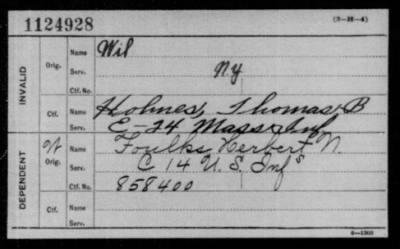 1124928 (3-18-4)
INVALID Orig. Name Wil
Serv. Ny
Ctf. No.
Ctf. Name Holmes, Thomas B
Serv. E-24 Mass Inf
DEPENDENT Orig. Name Foulks Herbert N
Serv. C 14 U. S. Inf
Ctf. No. 858400
Ctf. Name
Serv.